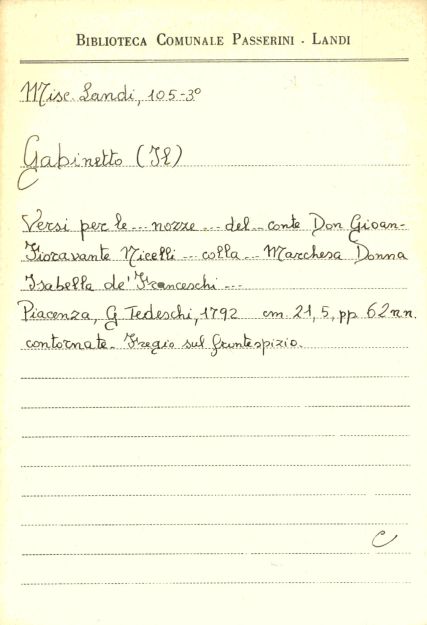 BIBLIOTECA COMUNALE PASSERINI - LANDI
Misc. Landi, 105-3º
Gabinetto (Il)
Versi per le ... nozze ... del ... conte Don Gioan-
Fioravante Nicelli ... colla ... Marchesa Donna
Isabella de' Franceschi ...
Piacenza, G. Tedeschi, 1792 cm. 21,5, pp. 62 nn.
contornate. Fregio sul frontespizio.
C